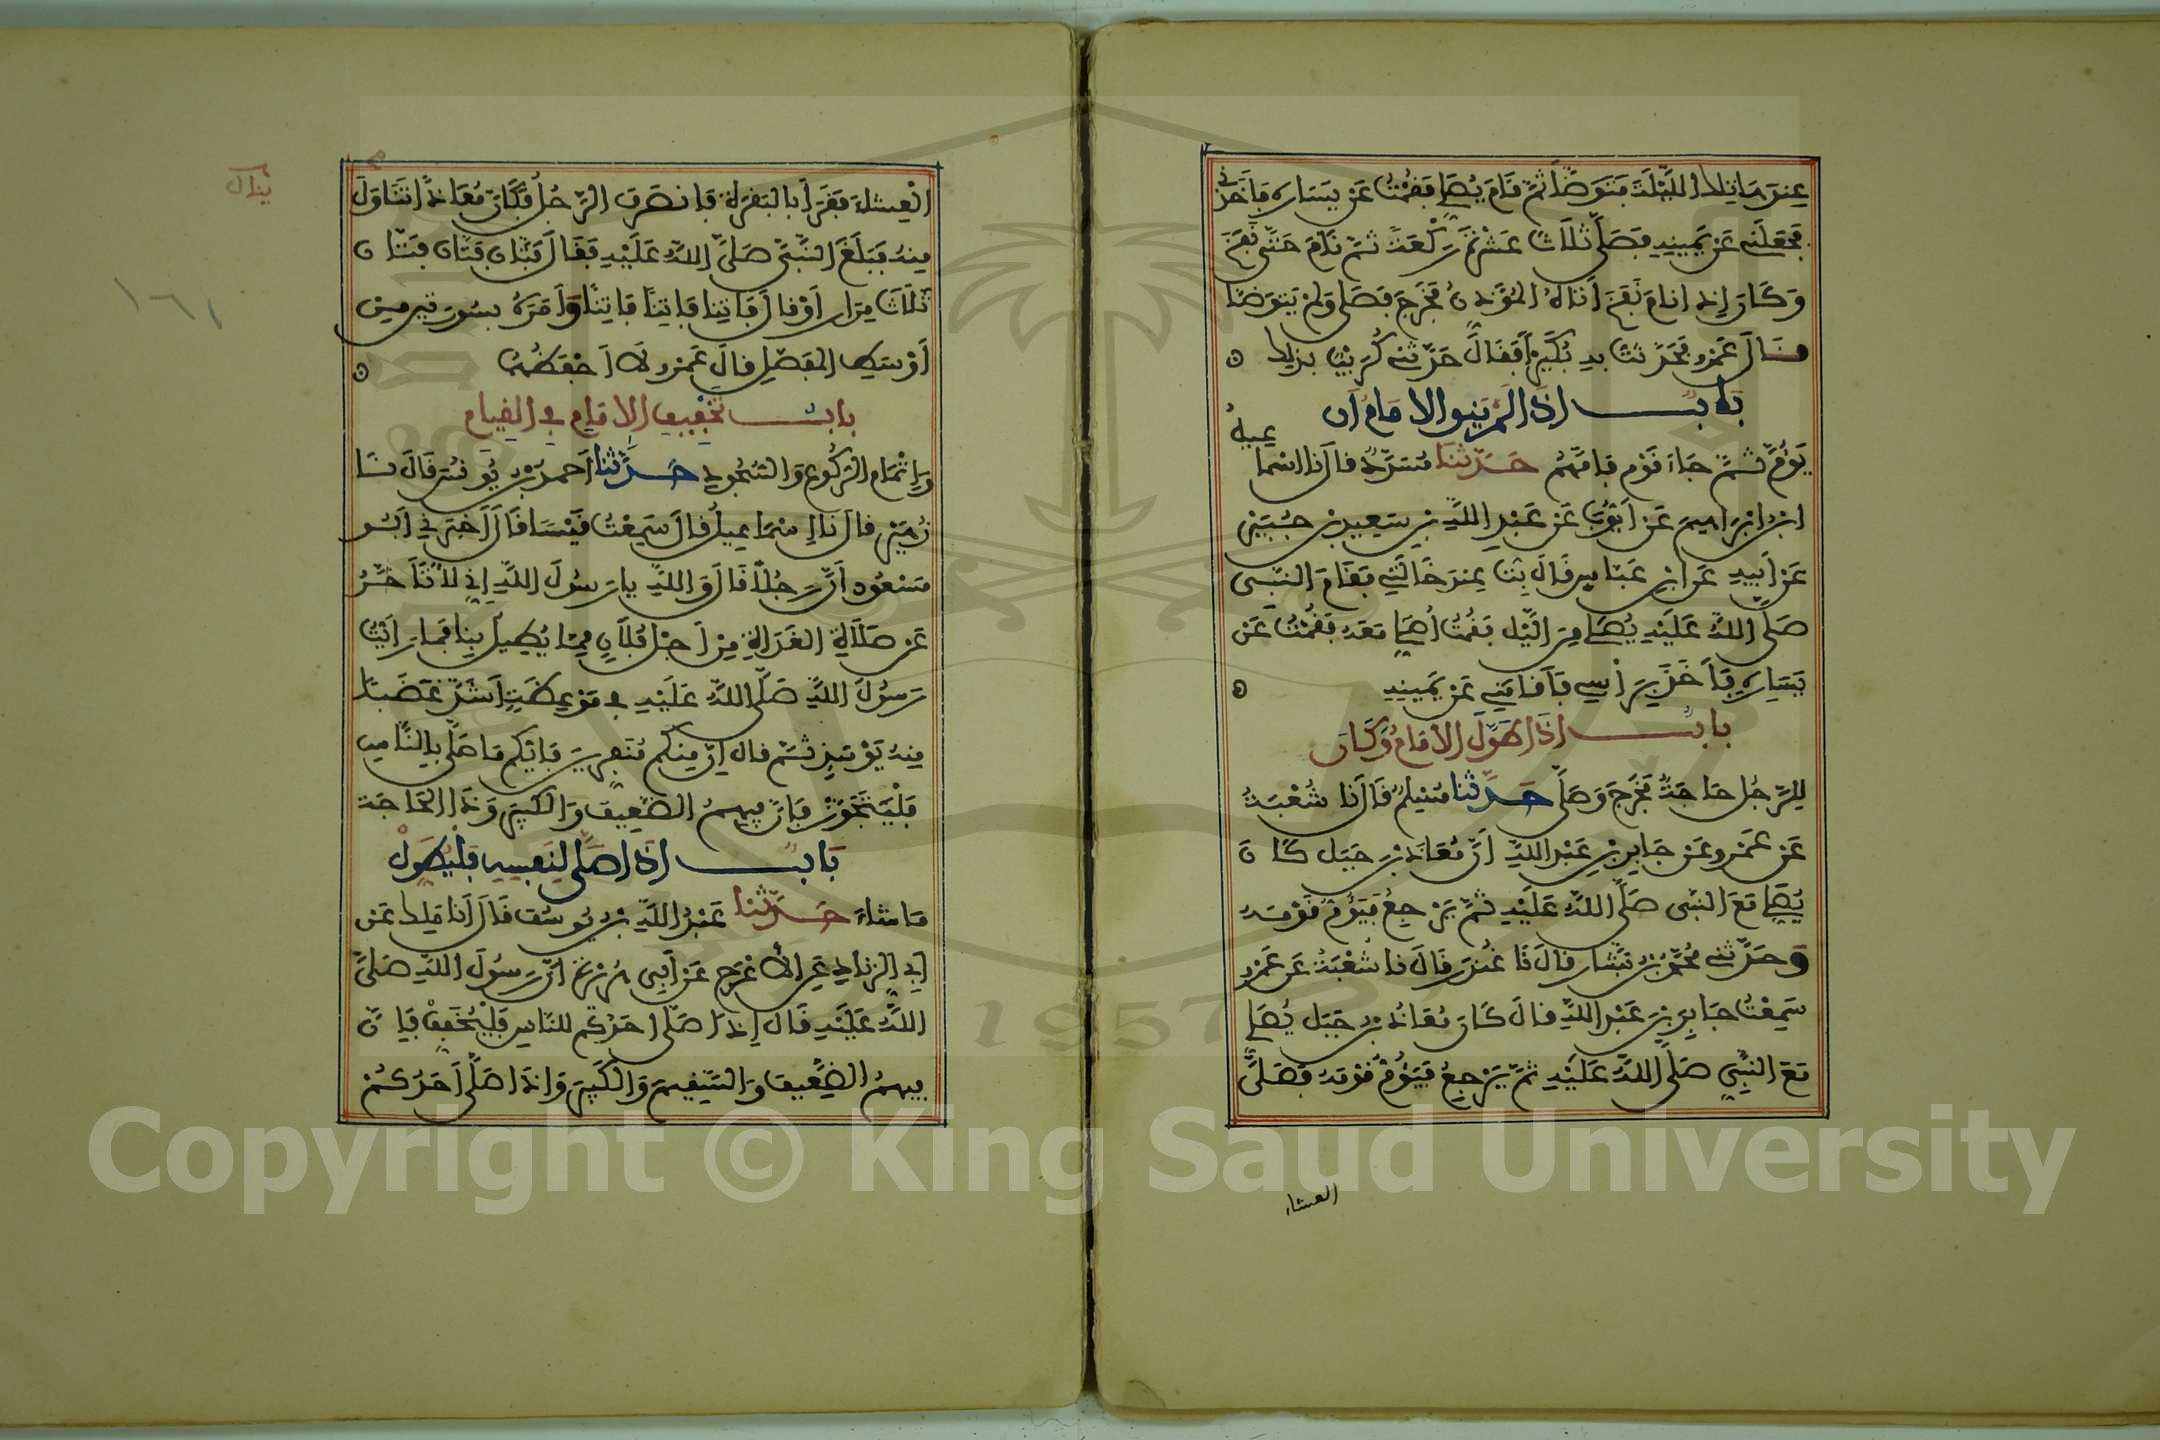 عِندَهَا تِلْكَ اللَّيْلَةَ فَتَوَضَّأَ ثُمَّ قَامَ يُصَلِّي فَقُمْتُ عَن يَسَارِهِ فَأَخَذَنِي
فَجَعَلَنِي عَنْ يَمِينِهِ فَصَلَّى ثَلَاثَ عَشْرَةَ رَكْعَةً ثُمَّ نَامَ حَتَّى نَفَخَ
وَكَانَ إِذَا نَامَ نَفَخَ أَتَاهُ الْمُؤَذِّنُ فَخَرَجَ فَصَلَّى وَلَمْ يَتَوَضَّأ
قَالَ عَمْرٌو فَحَدَّثْتُ بِهِ بُكَيْراً فَقَالَ حَدَّثَنِي كُرَيْبٌ بِذَلِكَ
بَابٌ اذَا لَمْ يَنْوِ الامَامُ أَن
يَؤُمَّ ثُمَّ جَاءَ قَوْمٌ فَأَمَّهُمْ حَدَّثَنَا مُسَدَّدٌ قال نا اسْمَاعِيلُ
ابْنُ ابْرَاهِيمَ عَن أَيُّوبَ عَن عَبْدِ اللَّهِ بْنِ سَعِيدِ بْنِ جُبَيْرٍ
عَنْ أَبِيهِ عَنِ ابْنِ عَبَّاسٍ قَالَ بِتُّ عِندَ خَالَتِي فَقَامَ النَّبِي
صَلَّى اللَّهُ عَلَيْهِ يُصَلِّي مِنَ الَّيْلِ فَقُمْتُ أُصَلِّي مَعَهُ فَقُمْتُ عَنْ
يَسَارِهِ فَأَخَذَ بِرَأْسِي فَأَقَامَنِي عَنْ يَمِينِهِ
بَابٌ اذَا طَوَّلَ الامَامُ وَكَانَ
لِلرَّجُلِ حَاجَةٌ فَخَرَجَ وَصَلَّى حَدَّثَنَا مُسْلِمٌ قَالَ نَا شُعْبَةُ
عَنْ عَمْرٍو عَنْ جَابِرِ بْنِ عَبْدِ اللَّهِ أَنَّ مُعَاذَ بْنَ جَبَلٍ كَانَ
يُصَلِّي مَعَ النَّبِي صَلَّى اللَّهُ عَلَيْهِ ثُمَّ يَرْجِعُ فَيَؤُمُّ قَوْمَهُ
وَحَدَّثَنِي مُحَمَّدُ بْنُ بَشَّارٍ قَالَ نَا غُنْدَرٌ قَالَ نا شُعْبَةُ عَنْ عَمْرٍو
سَمِعْتُ جَابِرَ بْنَ عَبْدِ اللَّهِ قَالَ كَانَ مُعَاذُ بْنُ جَبَلٍ يُصَلِّي
مَعَ النَّبِيِّ صَلَّى اللَّهُ عَلَيْهِ ثُمَّ يَرْجِعُ فَيَؤُمُّ قَوْمَهُ فَصَلَّى
العشاء
الْعِشَاءَ فَقَرَأَ بِالْبَقَرَةِ فَانصَرَفَ الرَّجُلُ فَكَانَ مُعَاذٌ تَنَاوَلَ
مِنْهُ فَبَلَغَ النَّبِيَّ صَلَّى اللَّهُ عَلَيْهِ فَقَالَ فَتَّان فَتَّان فَتَّان
ثَلَاثَ مِرَارٍ أَوْ قالَ فَاتِناً فَاتِناً فَاتِناً وَأَمَرَهُ بِسُورَتَيْنِ مِنْ
أَوْسَطِ الْمُفَصَّلِ قَالَ عَمْرٌو لَا أَحْفَظُهُمَا
بَابُ تَخْفِيفِ الامَامِ فِي الْقِيَامِ
وَإِتْمَامِ الرُّكُوعِ وَالسُّجُودِ حَدَّثَنَا أَحْمَدُ بْنُ يُونُسَ قَالَ نَا
زُهَيْرٌ قَالَ نَا إِسْمَاعِيلُ قَالَ سَمِعْتُ قَيْساً قَالَ أَخْبَرَنِي أَبُو
مَسْعُودٍ أَنَّ رَجُلاً قَالَ وَاللَّهِ يَا رَسُولَ اللَّهِ إِنِّي لَأَتَأَخَّرُ
عَنْ صَلَاةِ الْغَدَاةِ مِنْ أَجْلِ فُلَانٍ مِمَّا يُطِيلُ بِنَا فَمَا رَأَيْتُ
رَسُولَ اللَّهِ صَلَّى اللَّهُ عَلَيْهِ فِي مَوْعِظَةٍ أَشَدَّ غَضَباً
مِنْهُ يَوْمَئِذٍ ثُمَّ قَالَ إِنَّ مِنكُم مُنَفِّرِينَ فَأَيُّكُم مَا صَلَّى بِالنَّاسِ
فَلْيَتَجَوَّزْ فَإِنَّ فِيهِمُ الضَّعِيفَ وَالْكَبِيرَ وَذَا الْحَاجَةِ
بَابٌ اذَا صَلَّى لِنَفْسِهِ فَلْيُطَوِّلْ
مَا شَاءَ حَدَّثَنَا عَبْدُ اللَّهِ بْنُ يُوسُفَ قَالَ أَنَا مَلِكٌ عَنْ
أَبِي الزِّنَادِ عَنِ الأَعْرَجِ عَنْ أَبِي هُرَيْرَةَ أَنَّ رَسُولَ اللَّهِ صَلَّى
اللَّهُ عَلَيْهِ قَالَ إِذَا صَلَّى أَحَدُكُم لِلنَّاسِ فَلْيُخَفِّفْ فَإِنَّ
فِيهِمُ الضَّعِيفَ وَالسَّقِيمَ وَالْكَبِيرَ وَإِذَا صَلَّى أَحَدُكُمْ
١٦١
1957
Copyright © King Saud University